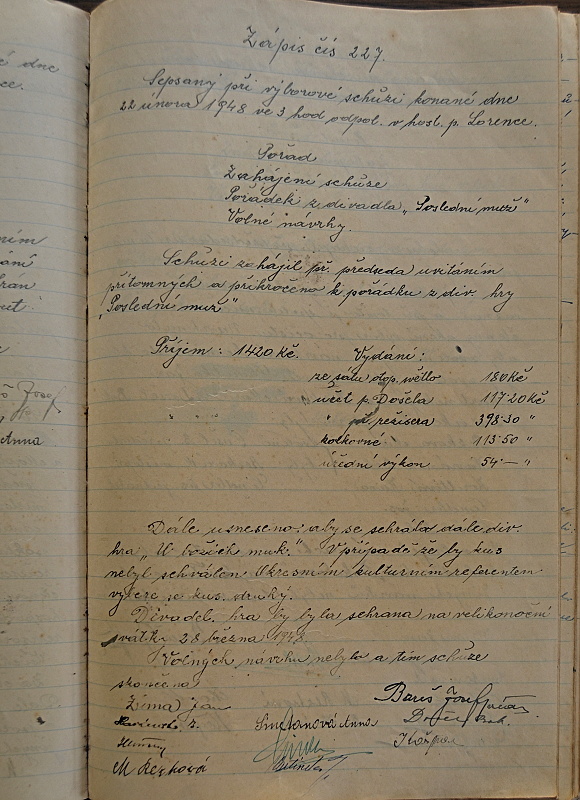 é dne
ce.
Zápis čís 227.
Sepsaný při výborové schůzi konané dne
22 února 1948 ve 3 hod odpol. v host. p. Lorence.
Pořad
Zahájení schůze
Pořádek z divadla „Poslední muž"
Volné návrhy.
Schůzi zahájil př. předseda uvítáním
přítomných a přikročeno k pořádku z div. hry
"Poslední muž"
Příjem : 1420 Kč. Vydání :
ze sálu otop. světlo 180 Kč
účet p. Došela 117·20 Kč
" " " režisera 398·30 "
kolkovné 113·50 "
úřední výkon 54·— "
Dále usneseno: aby se sehrála dále div.
hra „U božích muk." V případě že by kus
nebyl schválen Okresním kulturním referentem
vybere se kus druhý.
Divadel. hra by byla sehrana na velikonoční
svátky 28 března 1948
Volných návrhu nebylo a tím schůze
skončena
Zima Jan Bareš Josef
Smetanová Anna
Kašpar
M Řezková
ním
ání
hran
Josef
Anna